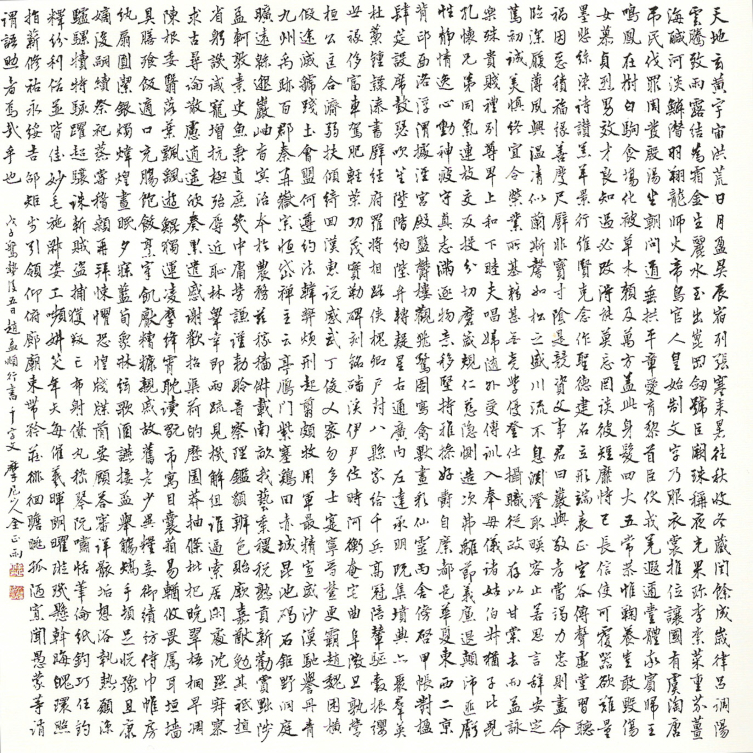 天地玄黃宇宙洪荒日月盈昃辰宿列張寒來暑往秋收冬藏閏餘成歲律呂調陽
雲騰致雨露結為霜金生麗水玉出崑岡劍號巨闕珠稱夜光果珍李柰菜重芥薑
海鹹河淡鱗潛羽翔龍師火帝鳥官人皇始制文字乃服衣裳推位讓國有虞陶唐
弔民伐罪周發殷湯坐朝問道垂拱平章愛育黎首臣伏戎羌遐邇壹體率賓歸王
鳴鳳在樹白駒食場化被草木賴及萬方蓋此身髮四大五常恭惟鞠養豈敢毀傷
女慕貞烈男效才良知過必改得能莫忘罔談彼短靡恃己長信使可覆器欲難量
墨悲絲染詩讚羔羊景行維賢克念作聖德建名立形端表正空谷傳聲虛堂習聽
禍因惡積福緣善慶尺璧非寶寸陰是競資父事君曰嚴與敬孝當竭力忠則盡命
臨深履薄夙興溫凊似蘭斯馨如松之盛川流不息淵澄取映容止若思言辭安定
篤初誠美慎終宜令榮業所基籍甚無竟學優登仕攝職從政存以甘棠去而益詠
樂殊貴賤禮別尊卑上和下睦夫唱婦隨外受傅訓入奉母儀諸姑伯叔猶子比兒
孔懷兄弟同氣連枝交友投分切磨箴規仁慈隱惻造次弗離節義廉退顛沛匪虧
性靜情逸心動神疲守真志滿逐物意移堅持雅操好爵自縻都邑華夏東西二京
背邙面洛浮渭據涇宮殿盤鬱樓觀飛驚圖寫禽獸畫彩仙靈丙舍傍啟甲帳對楹
肆筵設席鼓瑟吹笙陞階納陛弁轉疑星右通廣內左達承明既集墳典亦聚群英
杜稾鍾隸漆書壁經府羅將相路俠槐卿戶封八縣家給千兵高冠陪輦驅轂振纓
世祿侈富車駕肥輕策功茂實勒碑刻銘磻溪伊尹佐時阿衡奄宅曲阜微旦孰營
桓公匡合濟弱扶傾綺回漢惠說感武丁俊乂密勿多士寔寧晉楚更霸趙魏困橫
假途滅虢踐土會盟何遵約法韓弊煩刑起翦頗牧用軍最精宣威沙漠馳譽丹青
九州禹跡百郡秦并嶽宗恒岱禪主云亭鴈門紫塞雞田赤城昆池碣石鉅野洞庭
曠遠緜邈巖岫杳冥治本於農務茲稼穡俶載南畝我藝黍稷稅熟貢新勸賞黜陟
孟軻敦素史魚秉直庶幾中庸勞謙謹勑聆音察理鑑貌辨色貽厥嘉猷勉其祗植
省躬譏誡寵增抗極殆辱近恥林皋幸即兩疏見機解組誰逼索居閑處沈默寂寥
求古尋論散慮逍遙欣奏累遣慼謝歡招渠荷的歷園莽抽條枇杷晚翠梧桐早凋
陳根委翳落葉飄颻遊鯤獨運凌摩絳霄耽讀翫市寓目囊箱易輶攸畏屬耳垣牆
具膳飡飯適口充腸飽飫烹宰飢厭糟糠親戚故舊老少異糧妾御績紡侍巾帷房
紈扇圓潔銀燭煒煌晝眠夕寐藍筍象牀絃歌酒讌接盃舉觴矯手頓足悅豫且康
嫡後嗣續祭祀蒸嘗稽顙再拜悚懼恐惶牋牒簡要顧答審詳骸垢想浴執熱願涼
驢騾犢特駭躍超驤誅斬賊盜捕獲叛亡布射僚丸嵇琴阮嘯恬筆倫紙鈞巧任釣
釋紛利俗並皆佳妙毛施淑姿工顰妍笑年矢每催羲暉朗曜璇璣懸斡晦魄環照
指薪修祜永綏吉邵矩步引領仰俯廊廟束帶矜莊徘徊瞻眺孤陋寡聞愚蒙等誚
謂語助者焉哉乎也 戊子驚蟄後五日趙孟頫行書千字文 摩尼人金正雨